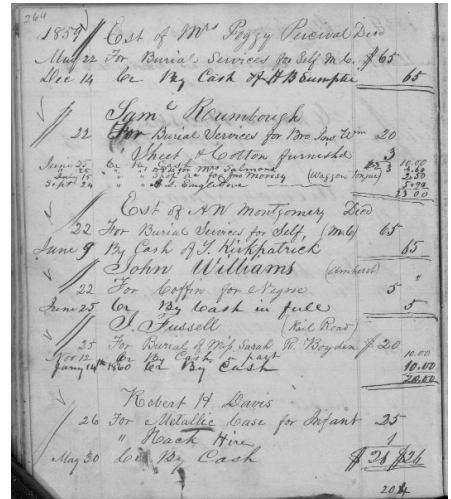 264
1859 Est of Mrs Peggy Percival Died
May 22 For Burial Services for Self M.C. $65
Dec 14 Cr By Cash of H B 65
Saml Roumbough
22 For Burial Services for Bro Sons Wm 20
Sheet & Cotton furnished 3
June 25 Cr By Cash 10.00
" for Mrs Salmons
July 15 (Waggon Tongue) 2.50
Sept 24 " 5.90
23.00
Est of A W Montgomery Died
22 For Burial Services for Self, (M C) 65
June 9 By Cash of T. Kirkpatrick 65
John Williams (Amherst) "
22 For Coffin for Negroe 5
June 25 Cr By Cash in full 5
J. Fussell (Rail Road)
25 For Burial of Miss Sarah R. Boyden $20
Nov 12 Cr By Cash in part 10.00
Jany 14th 1860 Cr By Cash 10.00
20.00
Robert H Davis
26 For Metallic Case for Infant 25
" Hack Hire 1
May 30 Cr By Cash $26 $26
204